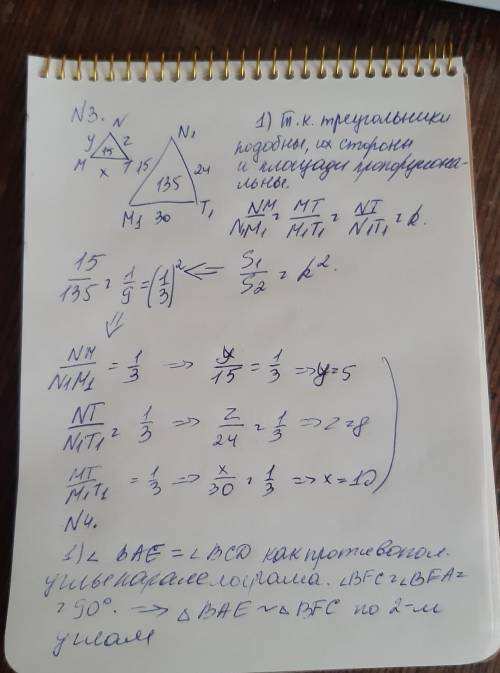 N3.
N
y z
15
M x T
N₁
15 24
135
M₁ 30 T₁
1) Т.к. треугольники
подобны, их стороны
и площади пропорциона-
льны.
NM/N₁M₁ = MT/M₁T₁ = NT/N₁T₁ = k.
15/135 = 1/9 = (1/3)² ⇐ S₁/S₂ = k².
⇓
NM/N₁M₁ = 1/3 ⇒ y/15 = 1/3 ⇒ y=5
NT/N₁T₁ = 1/3 ⇒ z/24 = 1/3 ⇒ z=8
MT/M₁T₁ = 1/3 ⇒ x/30 = 1/3 ⇒ x=10
N4.
1) ∠ BAE = ∠ BCD как противопол.
углы паралелограма. ∠BFC=∠BEA=
= 90°. ⇒ △ BAE ~ △ BFC по 2-м
углам